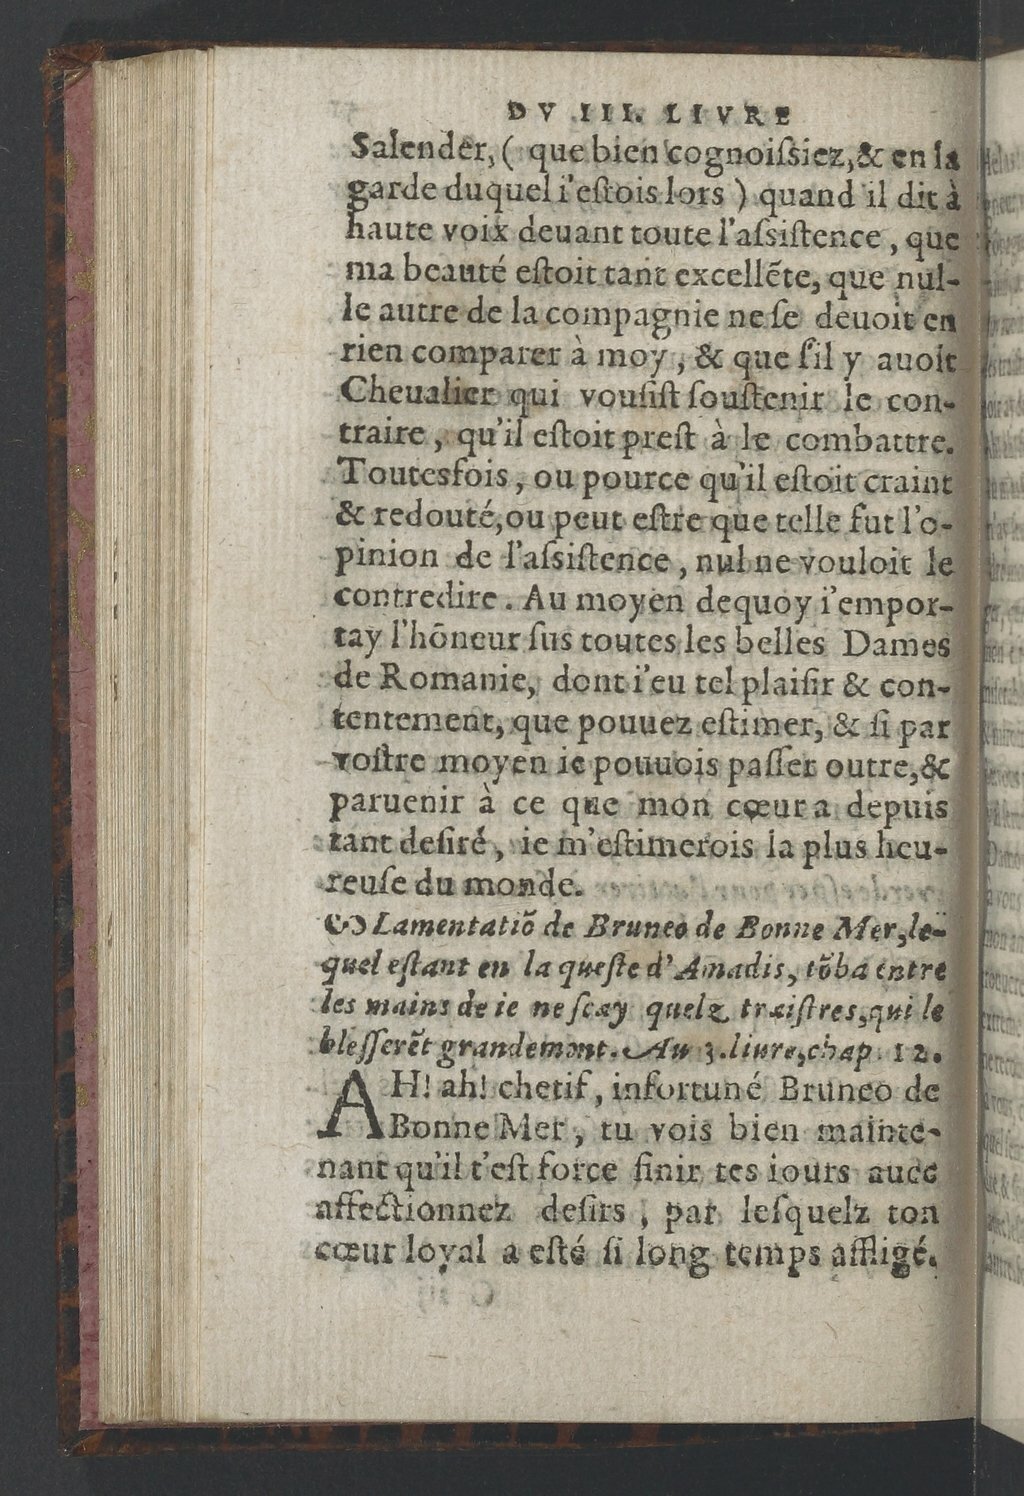 DV III. LIVRE
Salender, ( que bien cognoiſsiez,& en ſa
garde duquel i'eſtois lors ) quand il dit à
haute voix deuant toute l'aſsiſtence , que
ma beauté eſtoit tant excellẽte, que nul-
le autre de la compagnie ne ſe deuoit en
rien comparer à moy , & que ſ'il y auoit
Cheualier qui vouſiſt ſouſtenir le con-
traire , qu'il eſtoit preſt à le combattre.
Toutesfois , ou pource qu'il eſtoit craint
& redouté,ou peut eſtre que telle fut l'o-
pinion de l'aſsiſtence , nul ne vouloit le
contredire . Au moyen dequoy i'empor-
tay l'hõneur ſus toutes les belles Dames
de Romanie, dont i'eu tel plaiſir & con-
tentement, que pouuez eſtimer, & ſi par
voſtre moyen ie pouuois paſſer outre,&
paruenir à ce que mon cœur a depuis
tant deſiré , ie m'eſtimerois la plus heu-
reuſe du monde.
Lamentatiõ de Bruneo de Bonne Mer,le-
quel eſtant en la queſte d'Amadis, tõba entre
les mains de ie ne ſcay quelz traiſtres,qui le
bleſſerẽt grandement. Au 3.liure,chap. 12.
AH! ah! chetif , infortuné Bruneo de
Bonne Mer , tu vois bien mainte-
nant qu'il t'eſt force finir tes iours auec
affectionnez deſirs , par leſquelz ton
cœur loyal a eſté ſi long temps affligé.